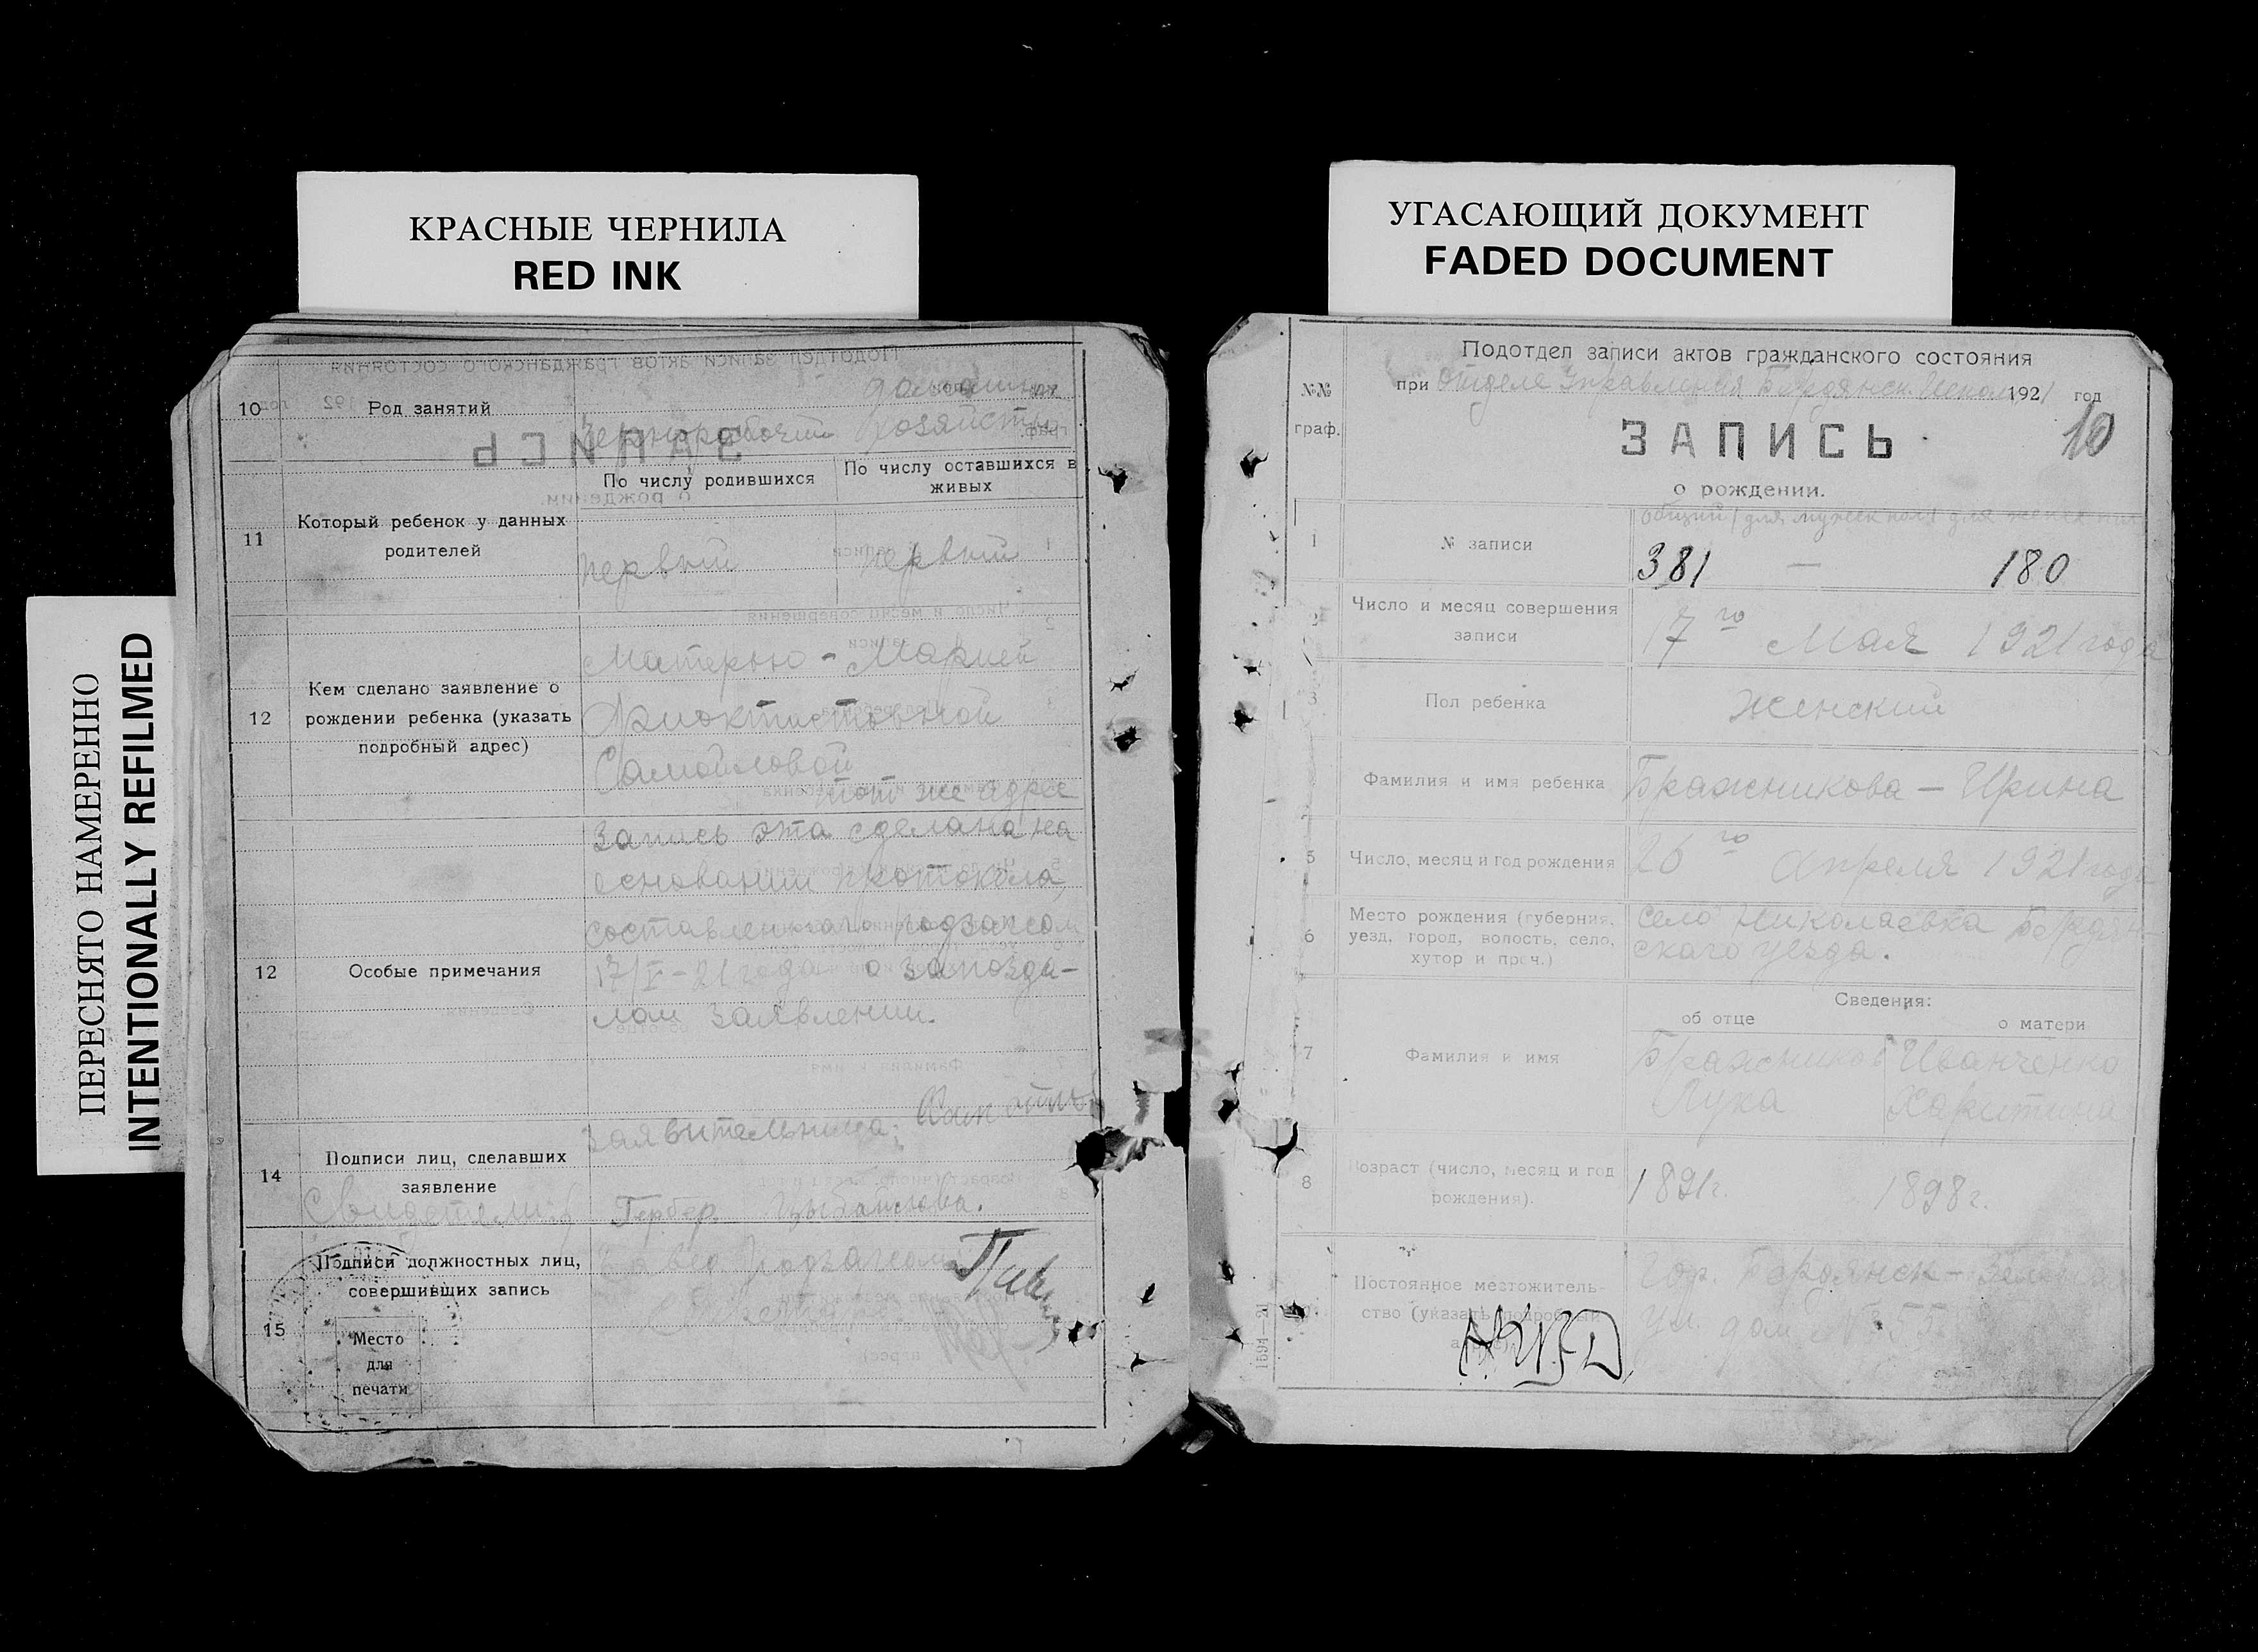 КРАСНЫЕ ЧЕРНИЛА
RED INK
УГАСАЮЩИЙ ДОКУМЕНТ
FADED DOCUMENT
ПЕРЕСНЯТО НАМЕРЕННО
INTENTIONALLY REFILMED
10
Род занятий
Чернорабочий
домашн.
хозяйство
11
Который ребенок у данных
родителей
По числу родившихся
По числу оставшихся в
живых
первый
первый
12
Кем сделано заявление о
рождении ребенка (указать
подробный адрес)
Матерью - Марией
Самойловой
тот же адрес
12
Особые примечания
Запись эта сделана на
основании протокола,
составленного подзагсом
17/V-21 года о запозда-
лом заявлении.
14
Подписи лиц, сделавших
заявление
Заявительница:
Свидетели:
Гербер
15
Подписи должностных лиц,
совершивших запись
Место
для
печати
Подотдел записи актов гражданского состояния
при Отделе Управления Бердянск. Исполк. 1921 год
10
№№
граф.
ЗАПИСЬ
о рождении.
общий / для мужск пола / для женск пол
1
№ записи
381 — 180
2
Число и месяц совершения
записи
17го Мая 1921 года
3
Пол ребенка
Женский
Фамилия и имя ребенка
Бражникова — Ирина
5
Число, месяц и год рождения
26го Апреля 1921 года
6
Место рождения (губерния,
уезд, город, волость, село,
хутор и проч.)
село Николаевка Бердян-
ского уезда.
Сведения:
об отце
о матери
7
Фамилия и имя
Бражников
Лука
Иванченко
Харитина
8
Возраст (число, месяц и год
рождения).
1891г.
1898г.
Постоянное местожитель-
ство (указать подробный
адрес)
Гор Бердянск —
ул. дом №
1594—21